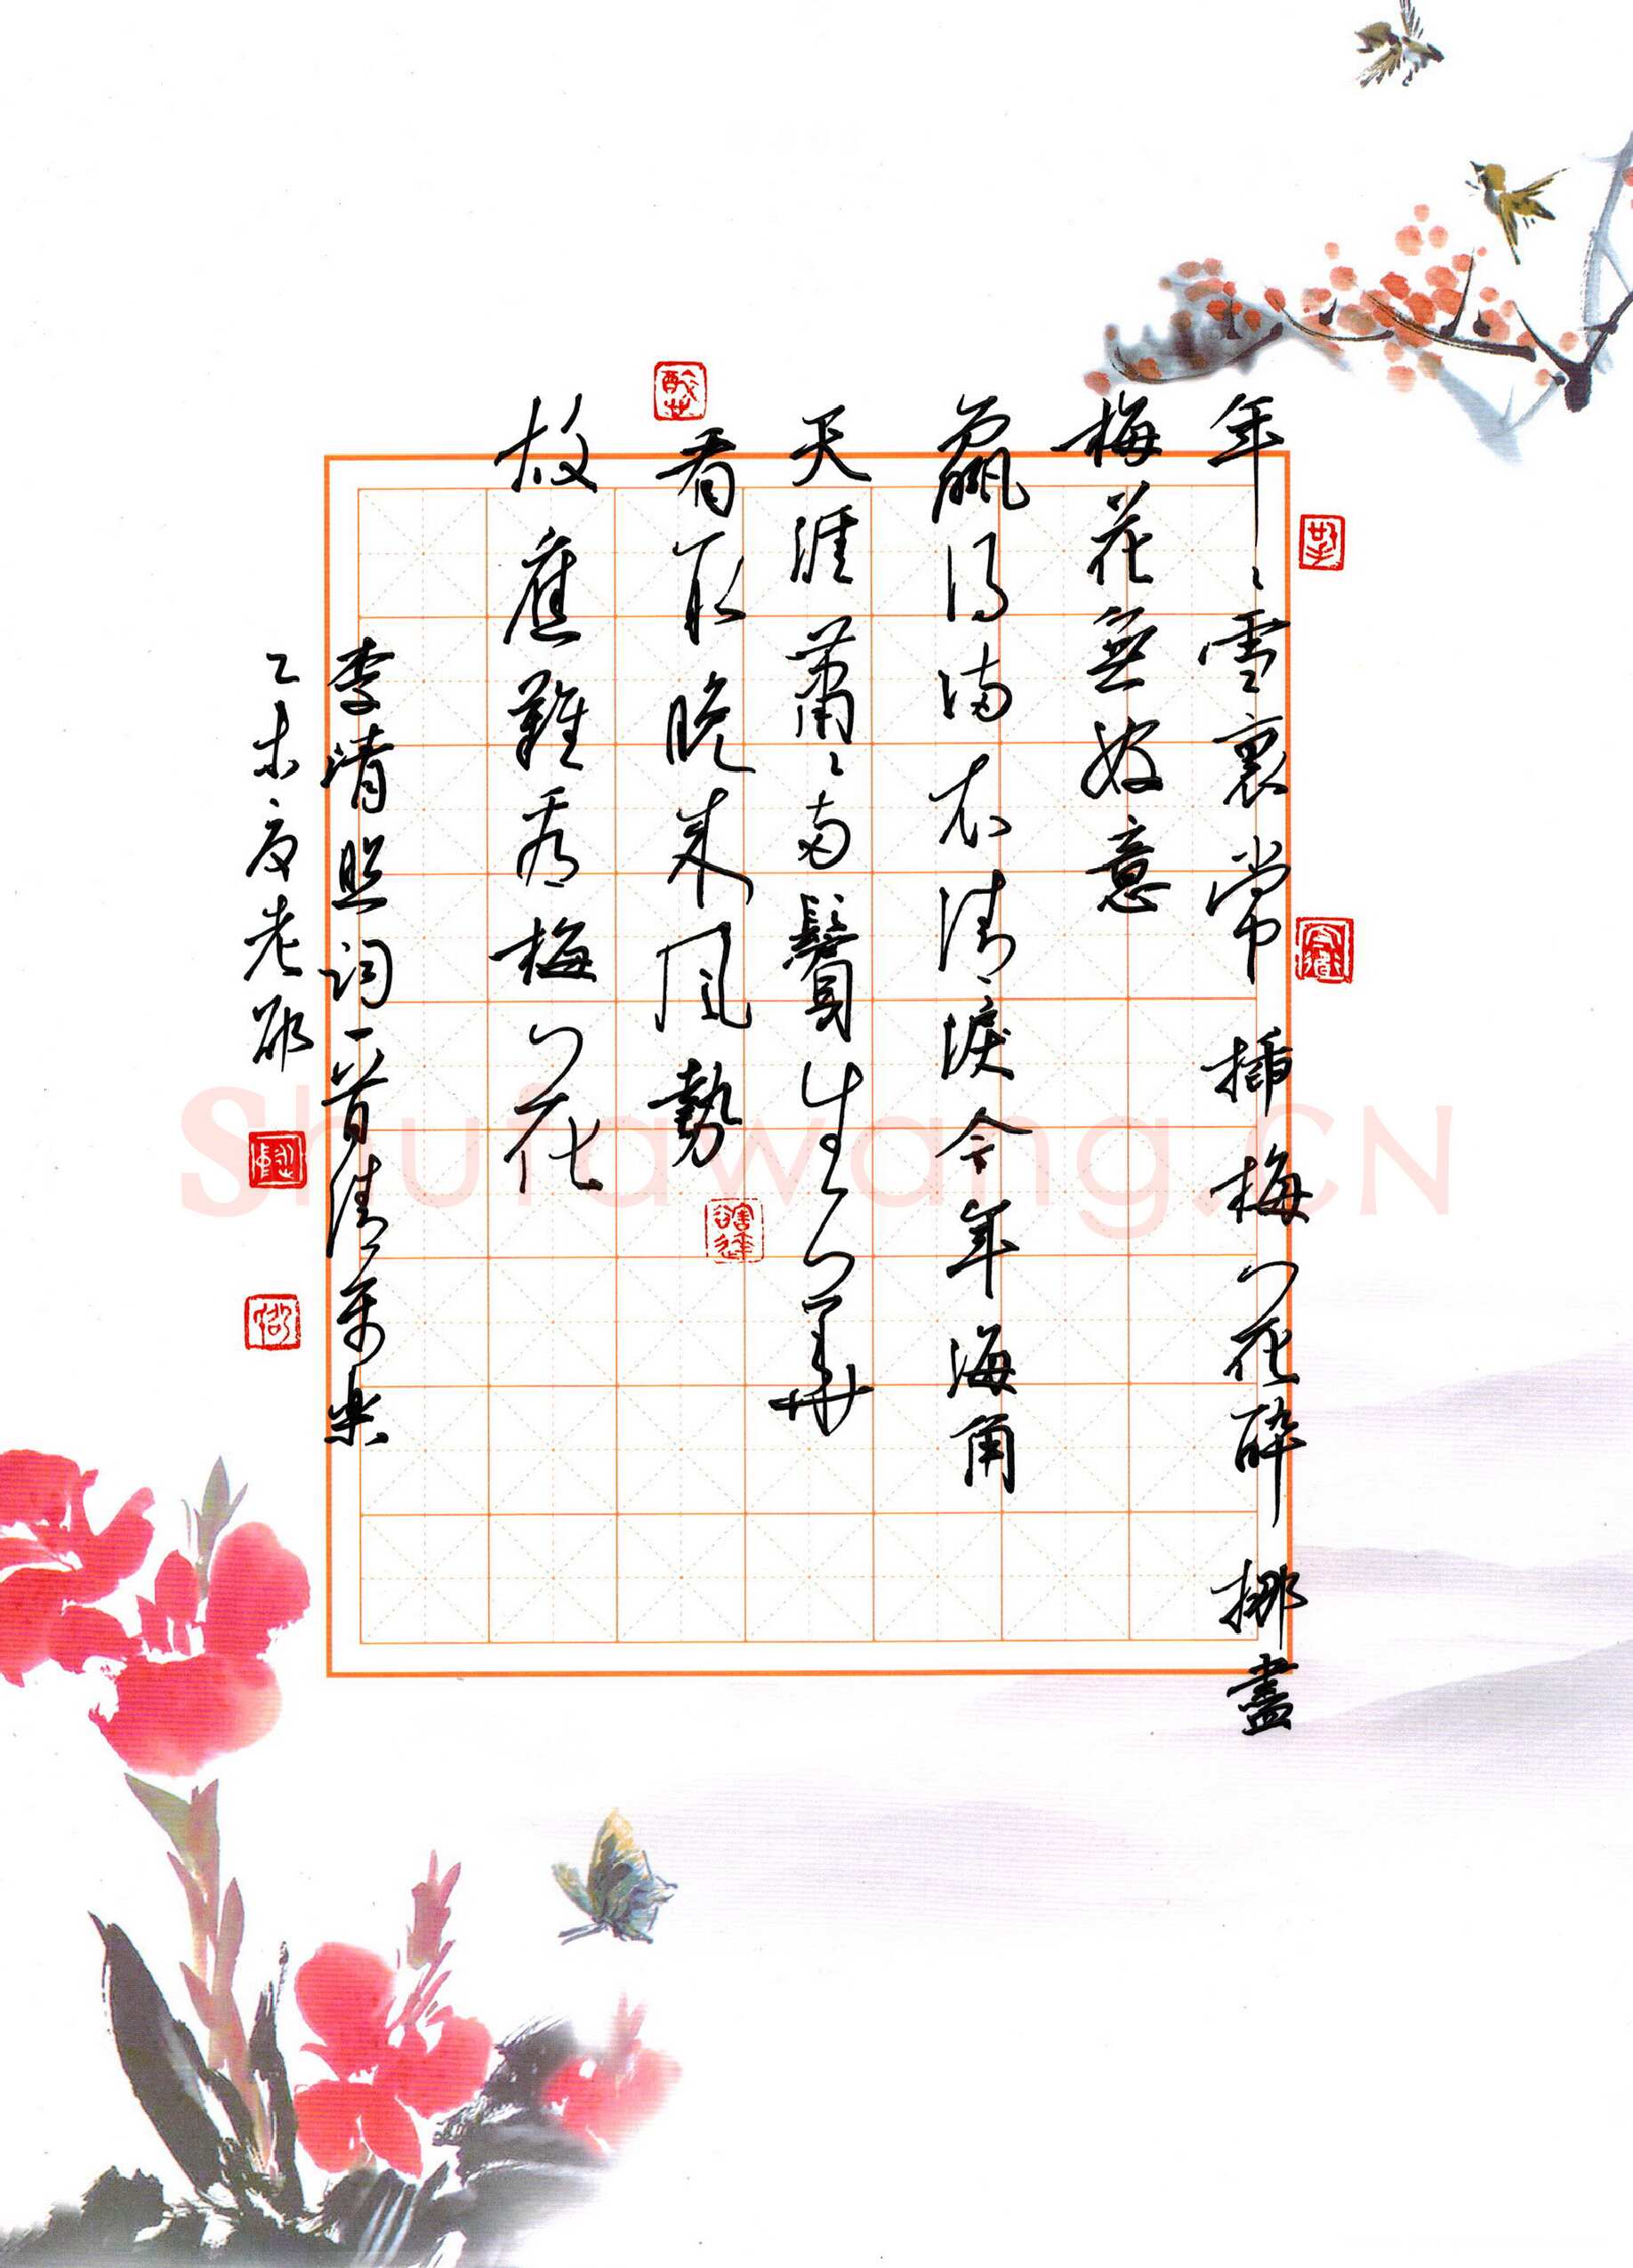 年〻雪裏常插梅花醉挪盡
梅花無好意
贏得滿衣清淚今年海角
天涯蕭〻兩鬢生華
看取晚來風勢
故應難看梅花
李清照詞一首清平樂
乙未夏老
Shufawang.CN